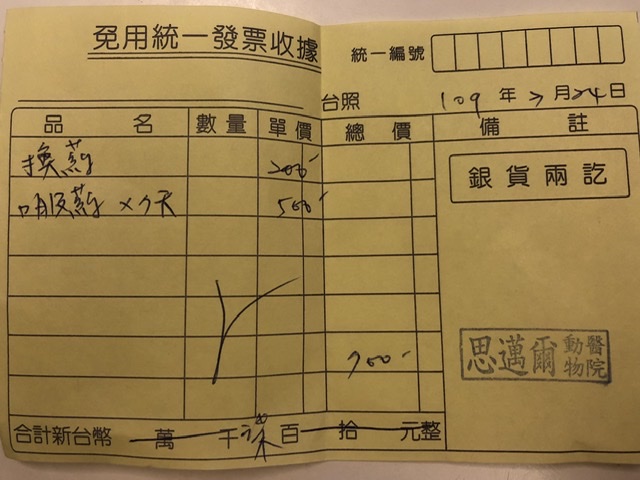 免用統一發票收據
統一編號
台照 109 年 7 月 24 日
品 名 數量 單價 總價 備註
換葯 200-
口服葯 ×7天 500-
銀貨兩訖
700-
思邁爾動物醫院
合計新台幣 萬 千 柒 百 拾 元整